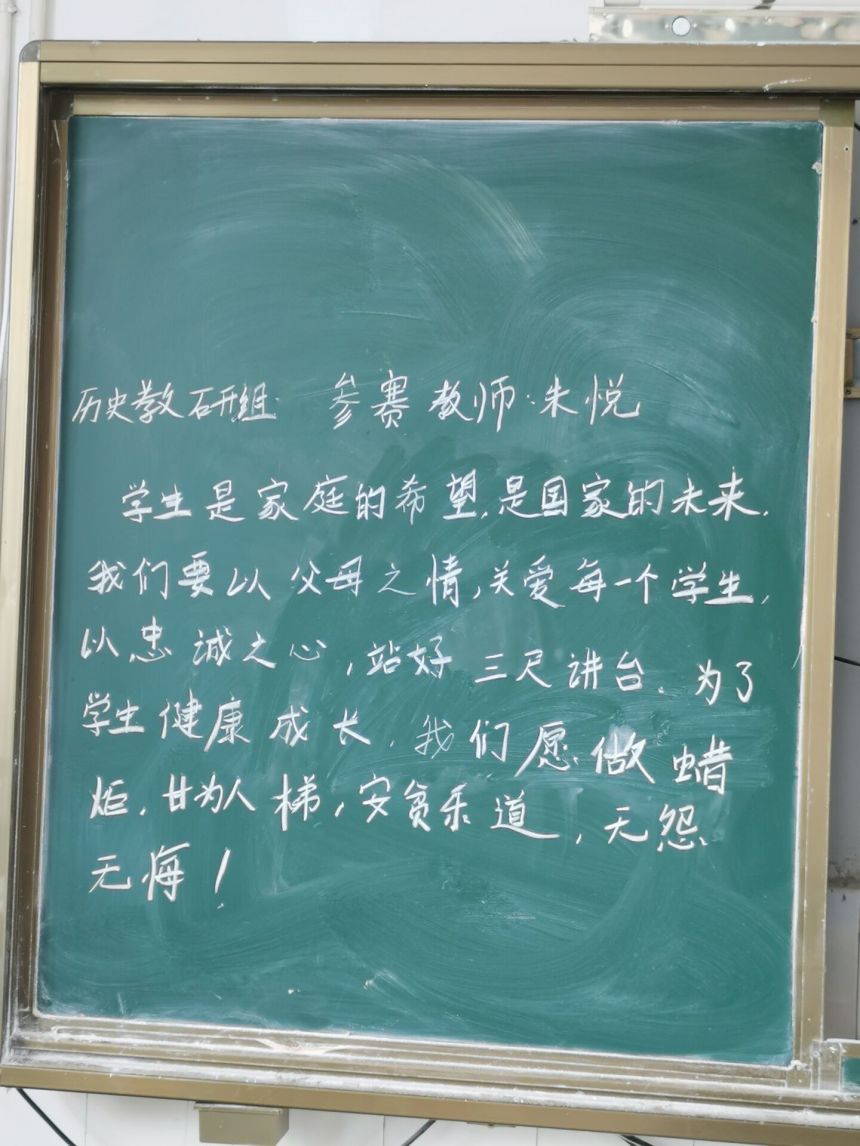 历史教研组 参赛教师:朱悦
学生是家庭的希望,是国家的未来.
我们要以父母之情,关爱每一个学生,
以忠诚之心,站好三尺讲台。为了
学生健康成长,我们愿做蜡
炬,甘为人梯,安贫乐道,无怨
无悔!